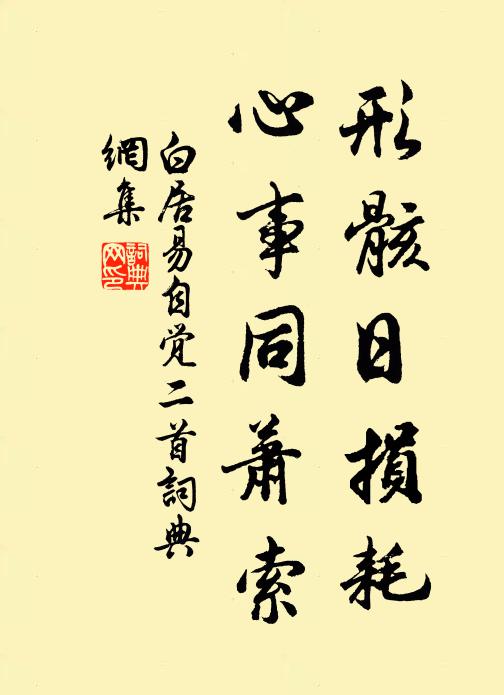 形骸日損耗
心事同蕭索
白居易自觉二首詞典
網集
詞典
网印